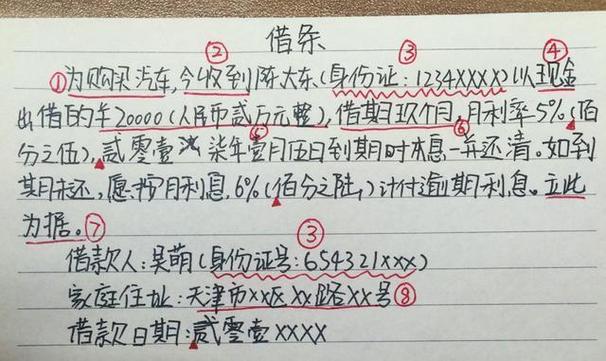 借条
② ③ ④
①为购买汽车,今收到陈大东(身份证:1234XXXX)以现金
出借的¥20000(人民币贰万元整),借期玖个月,月利率5%(佰
⑤ ⑥
分之伍),贰零壹柒年壹月伍日到期时本息一并还清。如到
期未还,愿按月利息6%(佰分之陆)计付逾期利息。立此
为据。⑦
③
借款人:吴萌(身份证号:654321xxx)
家庭住址:天津市xx区xx路xx号⑧
借款日期:贰零壹XXXX